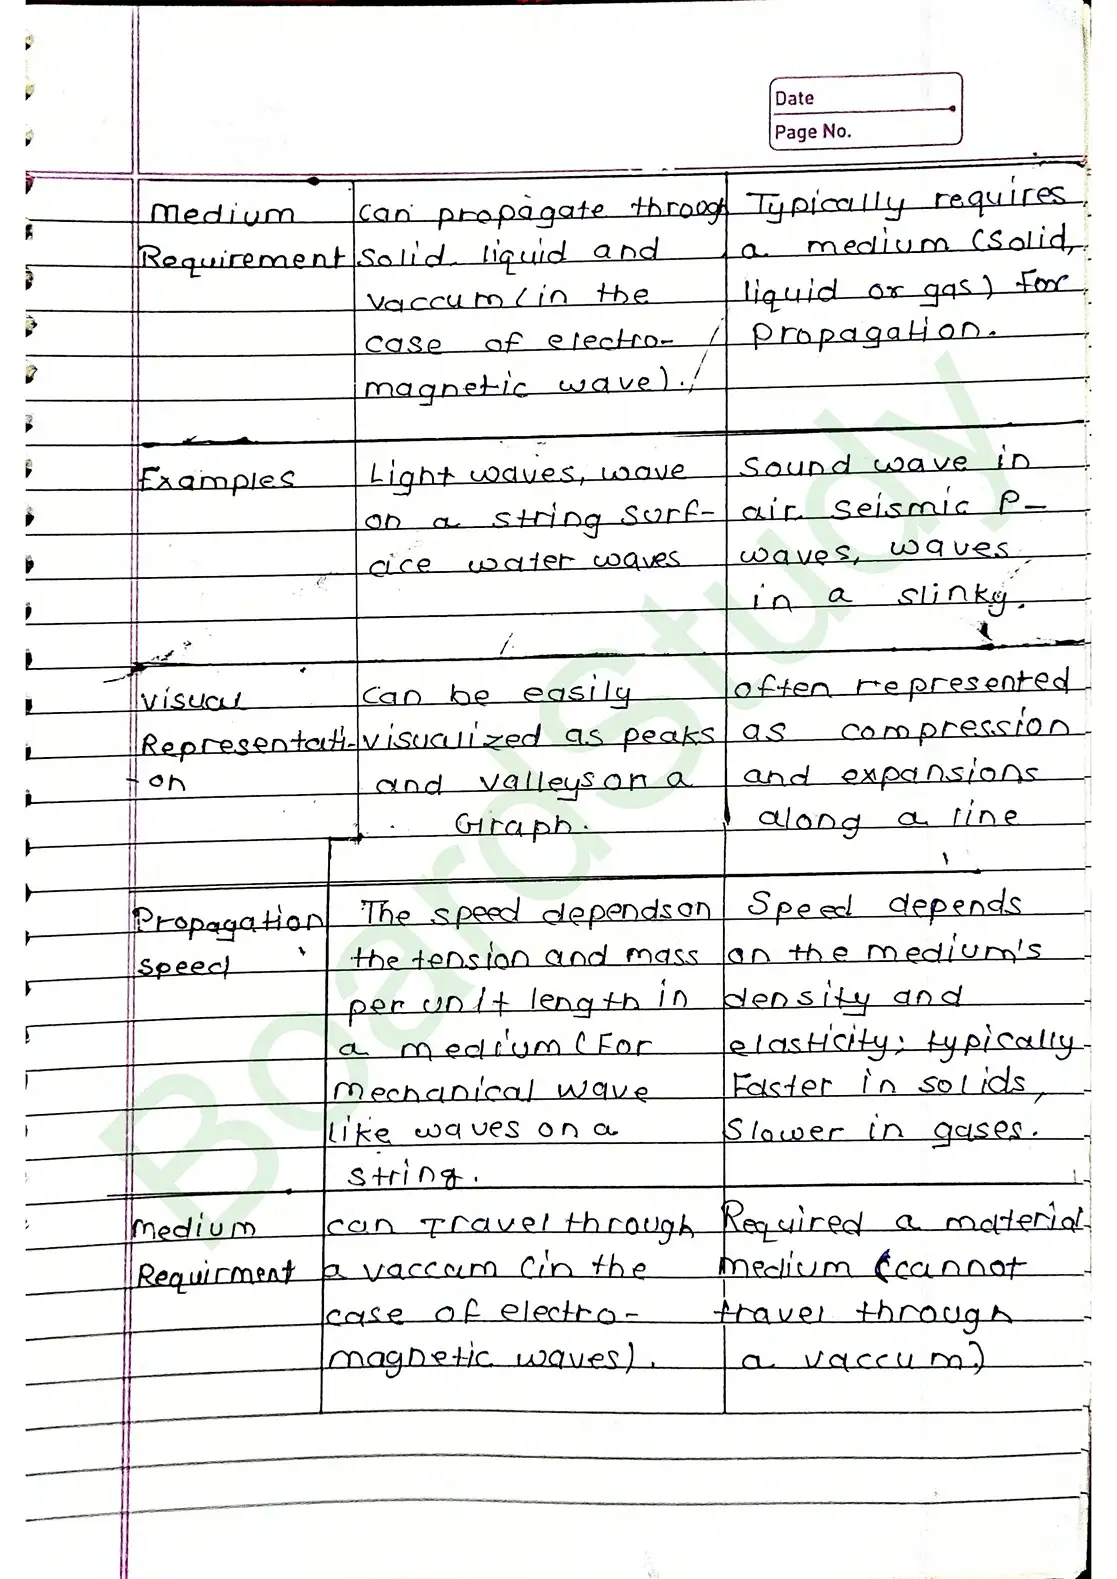 Date
Page No.
Medium
Requirement
Can propagate through
Solid. liquid and
vaccum (in the
case of electro-
magnetic wave).
Typically requires
a medium (Solid,
liquid or gas) For
propagation.
Examples
Light waves, wave
on a string surf-
ace water waves
Sound wave in
air. Seismic P-
waves, waves
in a slinky.
Visual
Representati-
-on
Can be easily
visualized as peaks
and valleys on a
Graph.
often represented
as compression
and expansions
along a line
Propagation
speed
The speed depends on
the tension and mass
per unit length in
a medium (For
Mechanical wave
like waves on a
string.
Speed depends
on the medium's
density and
elasticity; typically
Faster in solids,
Slower in gases.
Medium
Requirment
can Travel through
a vaccum (in the
case of electro-
magnetic waves).
Required a material
medium (cannot
travel through
a vaccum)
BoardStudy